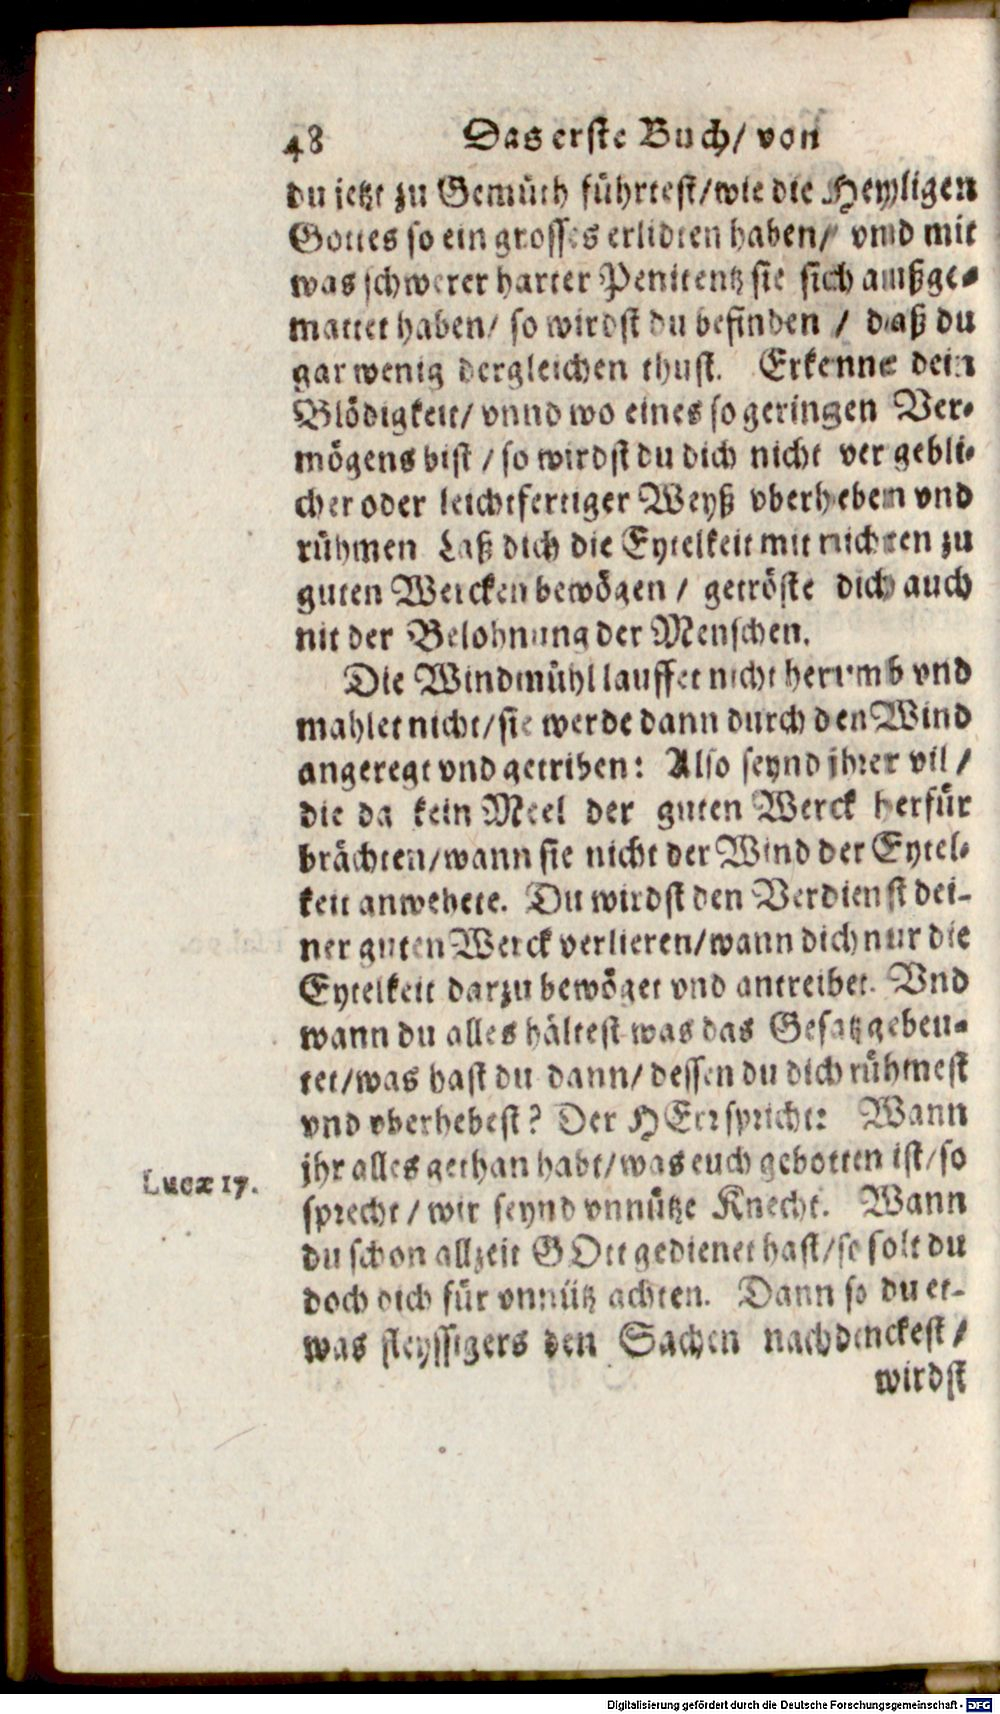 48 Das erste Buch/ von
du jetzt zu Gemüth führtest/wie die Heyligen
Gottes so ein grosses erlidten haben/ vnnd mit
was schwerer harter Penitentz sie sich außge-
mattet haben/ so wirdst du befinden / daß du
gar wenig dergleichen thust. Erkenne dein
Blödigkeit/ vnnd wo eines so geringen Ver-
mögens bist / so wirdst du dich nicht vergebli-
cher oder leichtfertiger Weyß vberheben vnd
rühmen Laß dich die Eytelkeit mit nichten zu
guten Wercken bewögen / getröste dich auch
nit der Belohnung der Menschen.
Die Windmühl lauffet nicht herumb vnd
mahlet nicht/sie werde dann durch den Wind
angeregt vnd getriben: Also seynd jhrer vil /
die da kein Meel der guten Werck herfür
brächten/wann sie nicht der Wind der Eytel-
keit anwehete. Du wirdst den Verdienst dei-
ner guten Werck verlieren/wann dich nur die
Eytelkeit darzu bewöget vnd antreibet. Vnd
wann du alles hältest was das Gesatz gebeu-
tet/was hast du dann/ dessen du dich rühmest
vnd vberhebest? Der HErr spricht: Wann
jhr alles gethan habt/was euch gebotten ist/so
Lucæ 17.
sprecht / wir seynd vnnütze Knecht. Wann
du schon allzeit GOtt gedienet hast/so solt du
doch dich für vnnütz achten. Dann so du et-
was fleyssigers den Sachen nachdenckest /
wirdst
Digitalisierung gefördert durch die Deutsche Forschungsgemeinschaft - DFG